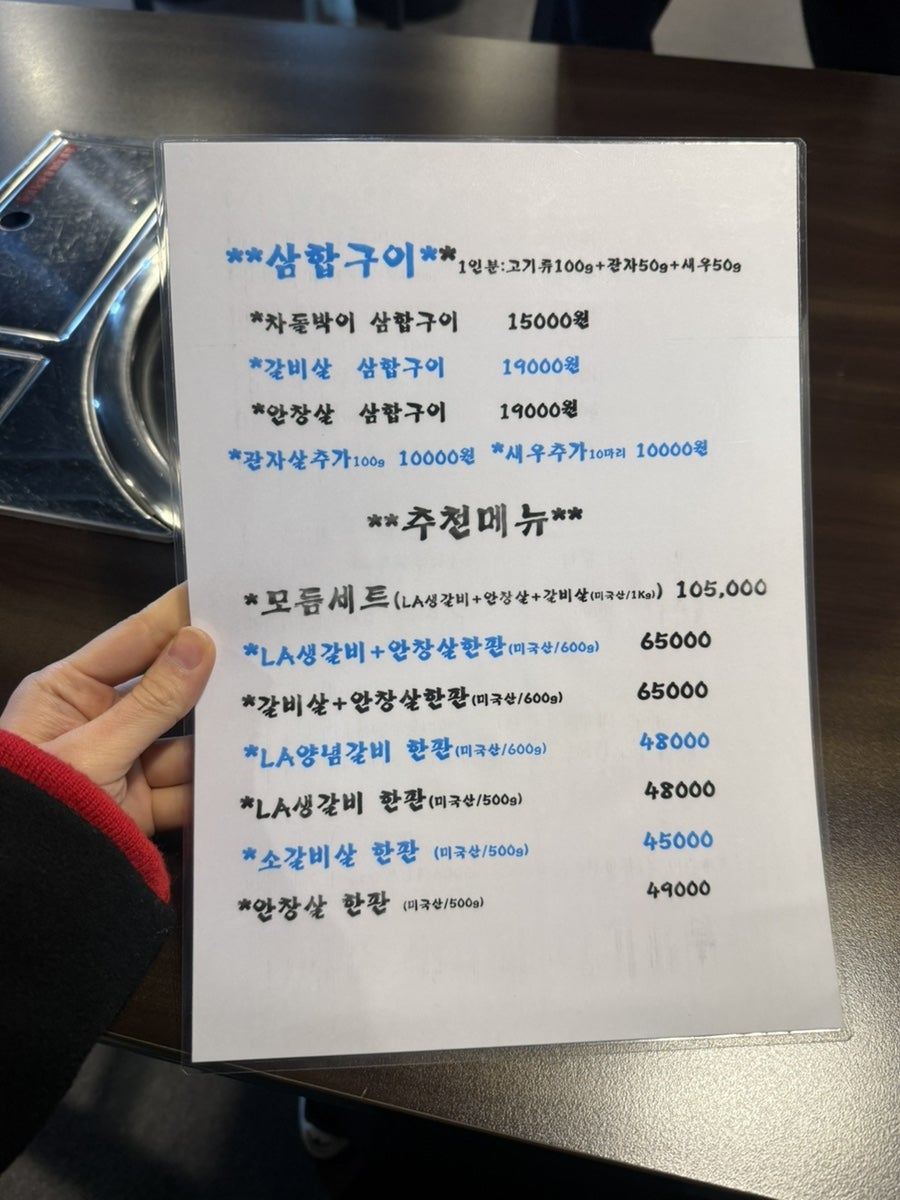 **삼합구이** 1인분:고기류100g+관자50g+새우50g
*차돌박이 삼합구이 15000원
*갈비살 삼합구이 19000원
*안창살 삼합구이 19000원
*관자살추가100g 10000원 *새우추가10마리 10000원
**추천메뉴**
*모듬세트(LA생갈비+안창살+갈비살(미국산/1Kg)) 105,000
*LA생갈비+안창살한판(미국산/600g) 65000
*갈비살+안창살한판(미국산/600g) 65000
*LA양념갈비 한판(미국산/600g) 48000
*LA생갈비 한판(미국산/500g) 48000
*소갈비살 한판 (미국산/500g) 45000
*안창살 한판 (미국산/500g) 49000